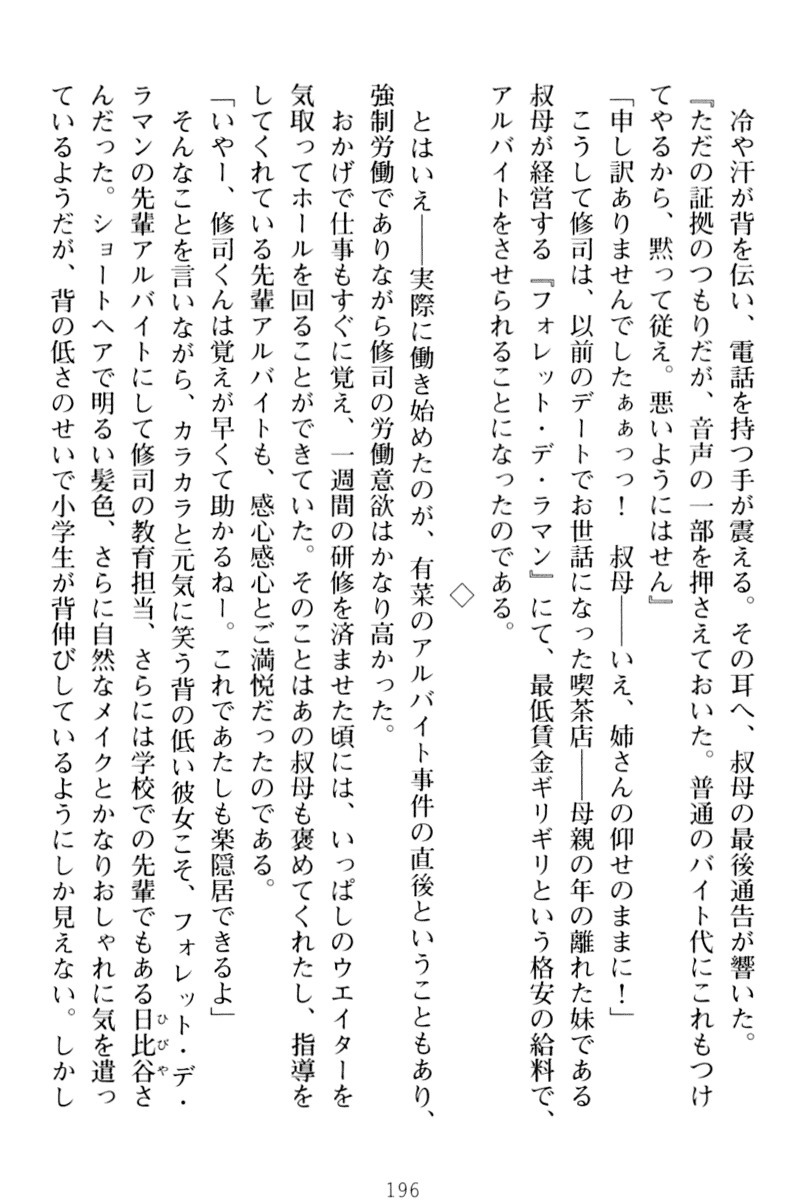 冷や汗が背を伝い、電話を持つ手が震える。その耳へ、叔母の最後通告が響いた。
『ただの証拠のつもりだが、音声の一部を押さえておいた。普通のバイト代にこれもつけ
てやるから、黙って従え。悪いようにはせん』
「申し訳ありませんでしたぁぁっっ！　叔母――いえ、姉さんの仰せのままに！」
こうして修司は、以前のデートでお世話になった喫茶店――母親の年の離れた妹である
叔母が経営する『フォレット・デ・ラマン』にて、最低賃金ギリギリという格安の給料で、
アルバイトをさせられることになったのである。
◇
とはいえ――実際に働き始めたのが、有菜のアルバイト事件の直後ということもあり、
強制労働でありながら修司の労働意欲はかなり高かった。
おかげで仕事もすぐに覚え、一週間の研修を済ませた頃には、いっぱしのウエイターを
気取ってホールを回ることができていた。そのことはあの叔母も褒めてくれたし、指導を
してくれている先輩アルバイトも、感心感心とご満悦だったのである。
「いやー、修司くんは覚えが早くて助かるねー。これであたしも楽隠居できるよ」
そんなことを言いながら、カラカラと元気に笑う背の低い彼女こそ、フォレット・デ・
ラマンの先輩アルバイトにして修司の教育担当、さらには学校での先輩でもある日比谷さ
んだった。ショートヘアで明るい髪色、さらに自然なメイクとかなりおしゃれに気を遣っ
ているようだが、背の低さのせいで小学生が背伸びしているようにしか見えない。しかし
ひびや
196